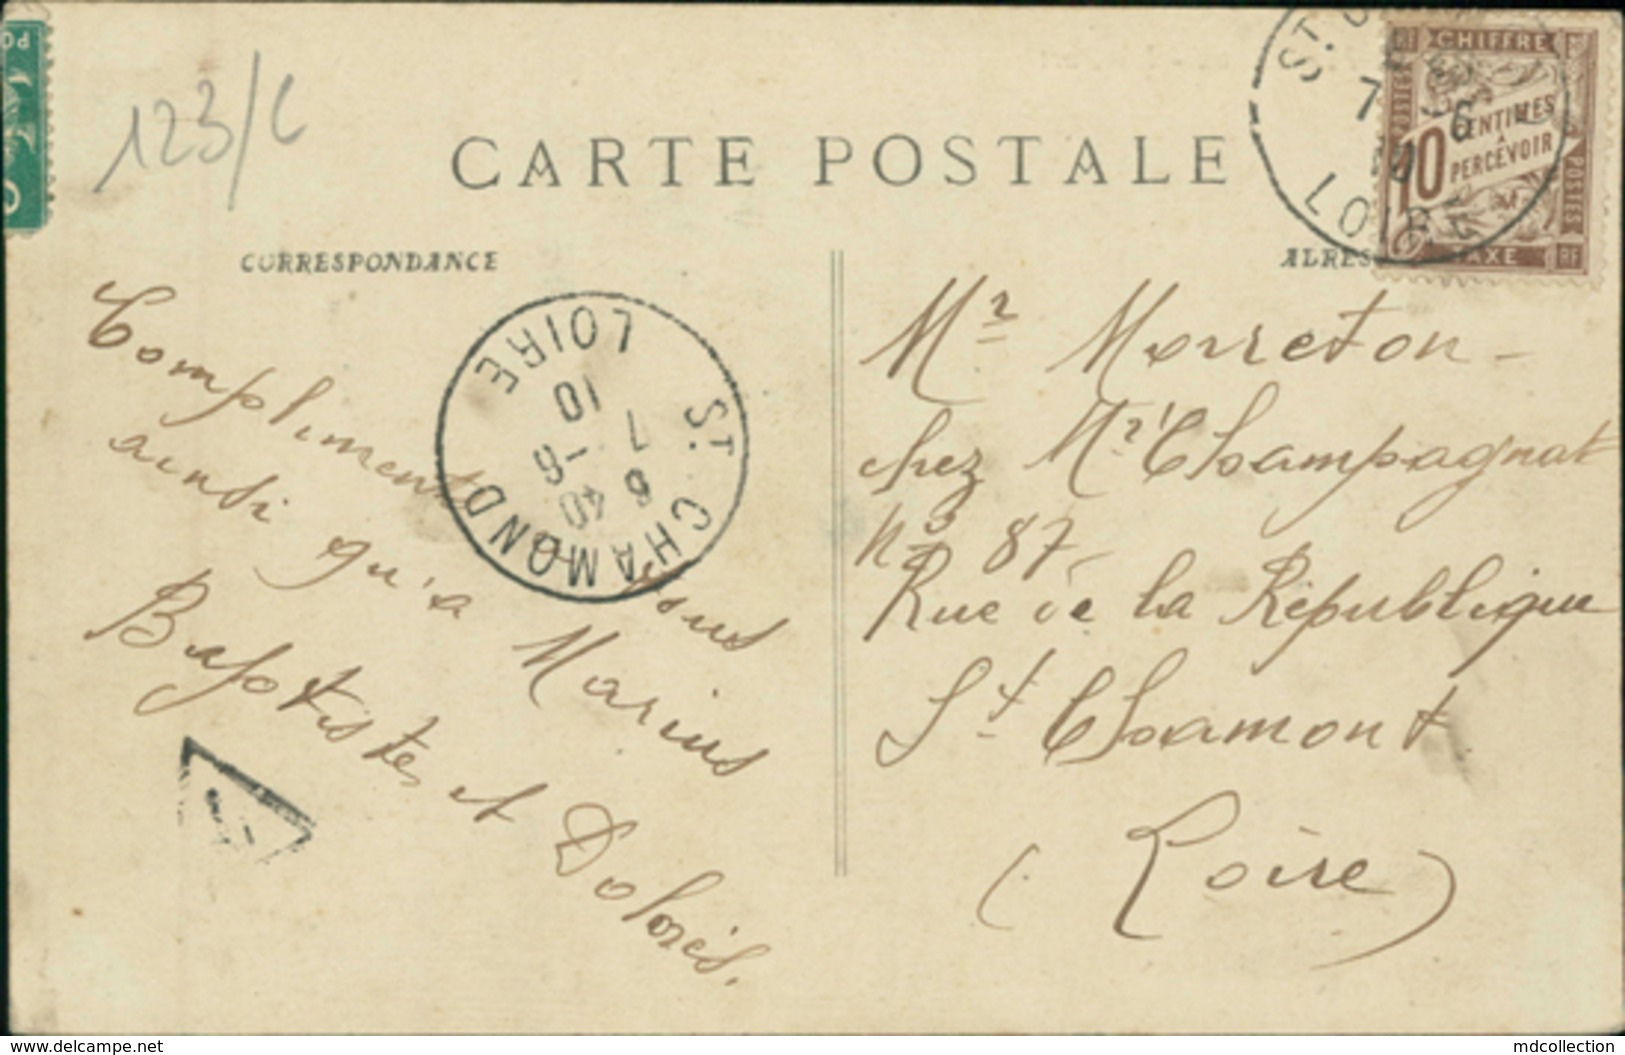 123/C
CARTE POSTALE
CORRESPONDANCE
Compliment
ainsi qu'a
Baptiste, et Doloréis.
Marius
ST CHAMOND
LOIRE
7
6 40
10 -6
ADRES
ST C
7 6
10
LOIRE
RF CHIFFRE
POSTES
10 CENTIMES
A
PERCEVOIR
POSTES
TAXE RF
PO
Mr Morreton -
chez Mr Champagnat
No 87,
Rue de la République
St Chamont
(Loire)
www.delcampe.net
mdcollection